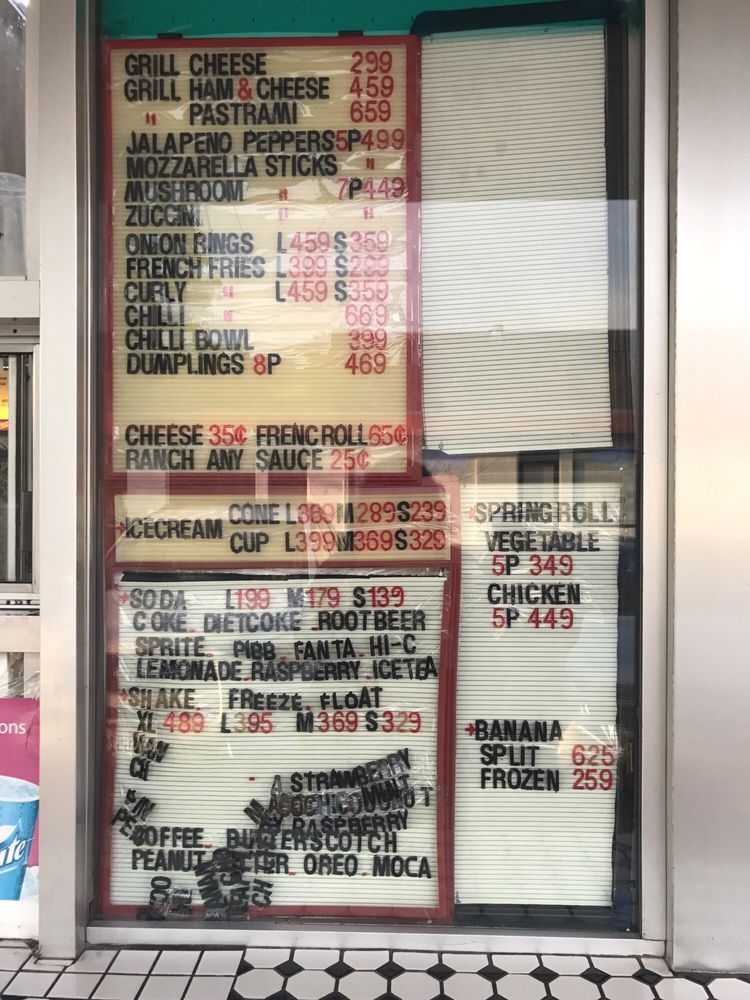 GRILL CHEESE 299
GRILL HAM & CHEESE 459
" PASTRAMI 659
JALAPENO PEPPERS 5P 499
MOZZARELLA STICKS "
MUSHROOM " 7P 449
ZUCCINI " "
ONION RINGS L 459 S 359
FRENCH FRIES L 399 S 299
CURLY " L 459 S 359
CHILLI " 669
CHILLI BOWL 399
DUMPLINGS 8P 469
CHEESE 35¢ FRENC ROLL 65¢
RANCH ANY SAUCE 25¢
ICECREAM CONE L 369 M 289 S 239
CUP L 399 M 369 S 329
SODA L 199 M 179 S 139
COKE DIETCOKE ROOTBEER
SPRITE PIBB FANTA HI-C
LEMONADE RASPBERRY ICETEA
SHAKE FREEZE FLOAT
XL 489 L 395 M 369 S 329
A STRAWBERRY
RASPBERRY
OFFEE BUTTERSCOTCH
PEANUT TER OREO MOCA
SPRING ROLL
VEGETABLE
5P 349
CHICKEN
5P 449
BANANA
SPLIT 625
FROZEN 259
ons
ute